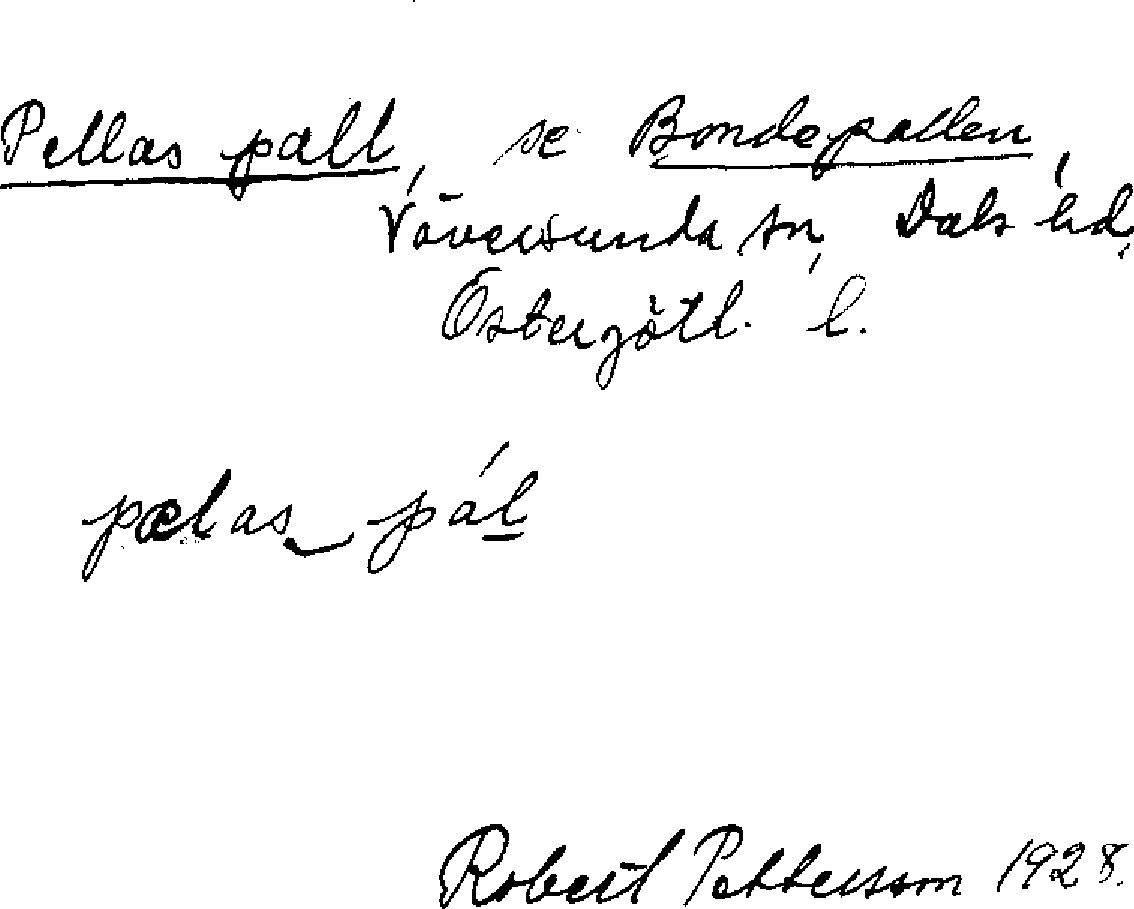 Pellas pall, se Bondepallen,
Väversunda sn, Dals hd,
Östergötl. l.
pælas pál
Robert Pettersson 1928.